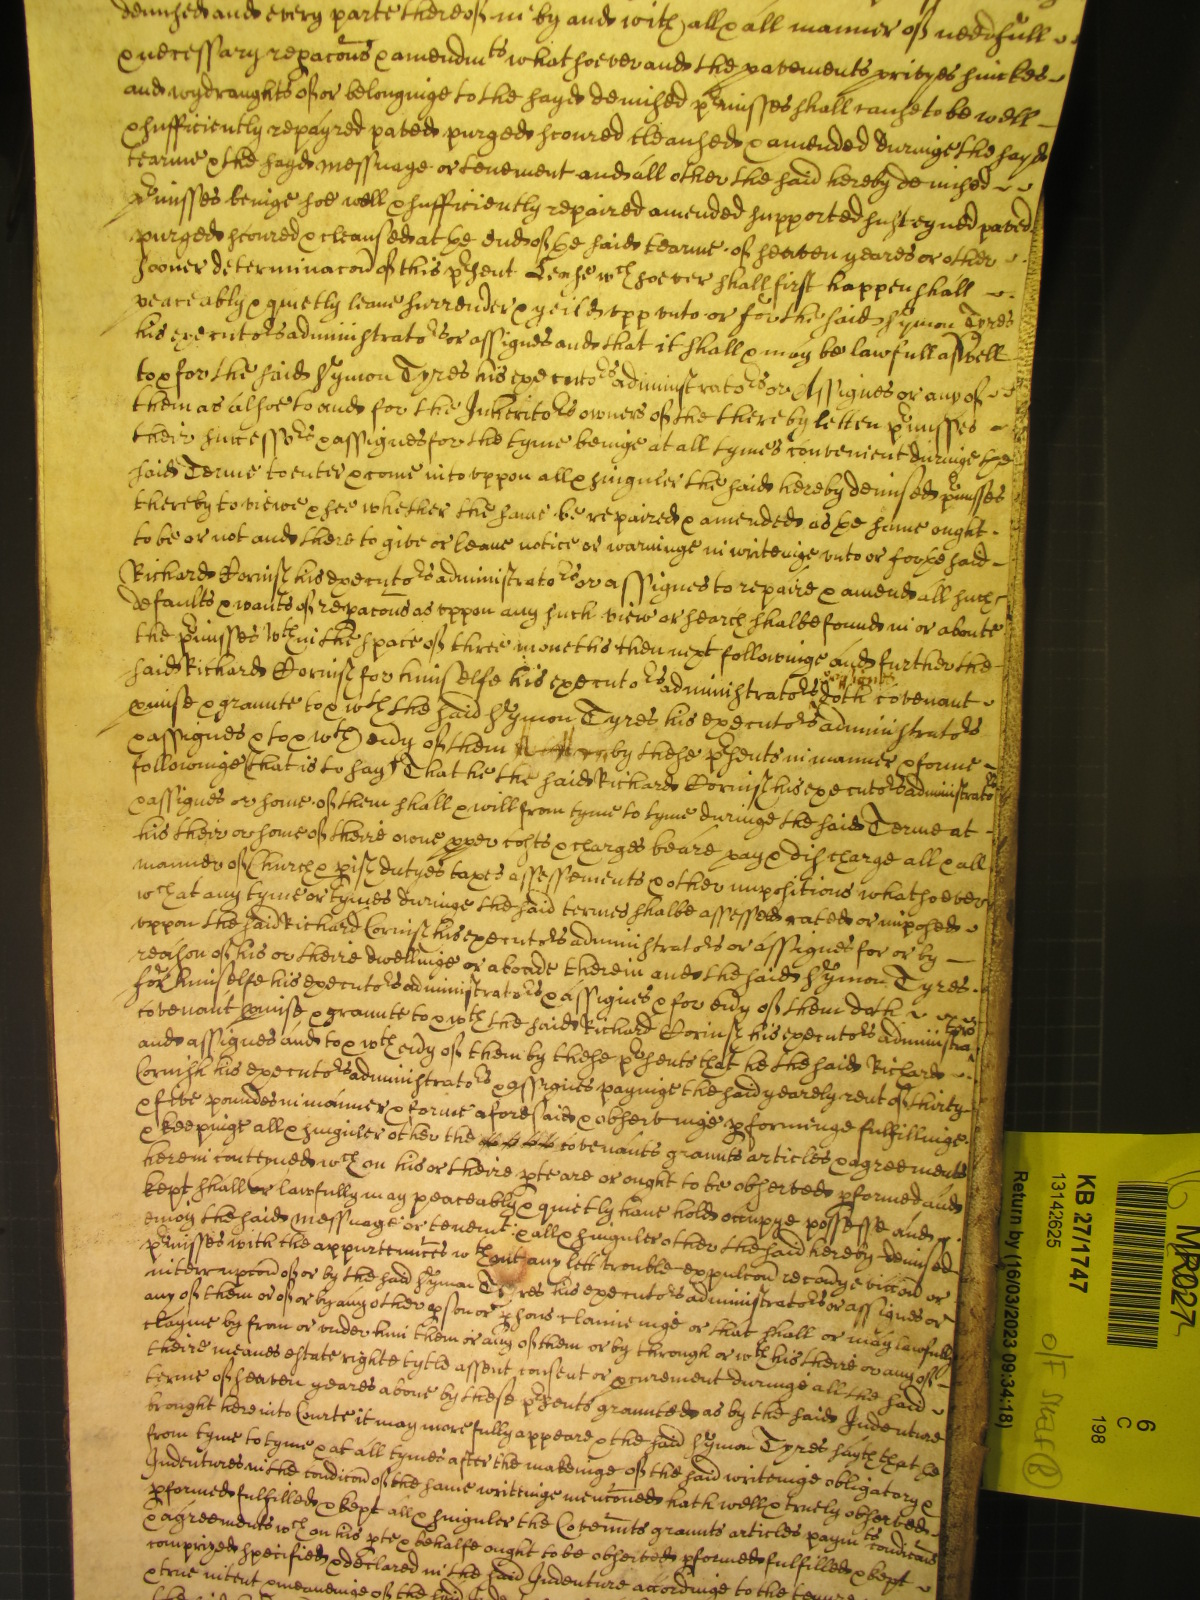 demised and every parte thereof in by and with all & all manner of needfull
& necessary repacons & amendmts whatsoever and the pavements privyes sinckes
and wydraughts of or belonginge to the sayd demised prmisses shall cause to be well
& sufficiently repayred paved purged scoured cleansed & amended duringe the sayd
tearme & the sayd messuage or tenement and all other the said hereby demised
prmisses beinge soe well & sufficiently repaired amended supported susteyned paved
purged scoured & cleansed at ye end of ye said tearme of seaven yeares or other
sooner determinacon of this prsent Lease wch soever shall first happen shall
peaceably & quietly leave surrender & yeild upp unto or for the said Symon Tyres
his executors administrators or assignes and that it shall & may be lawfull aswell
to & for the said Symon Tyres his executors administrators or Assignes or any of
them as alsoe to and for the Inheritors owners of the thereby letten prmisses
their successors & assignes for the tyme beinge at all tymes convenient duringe the
said Terme to enter & come into & uppon all & singuler the said hereby demised prmisses
thereby to viewe & see whether the same be repaired & amended as ye same ought
to be or not and there to give or leave notice or warninge in writeinge unto or for ye said
Richard Cornish his executors administrators or assignes to repaire & amend all such
defaults & wants of repacons as uppon any such view or search shalbe found in or aboute
the prmisses wthin the space of three moneths then next followinge and further the
said Richard Cornish for himselfe his executors administrators & assignes doth covenant
pmise & graunte to & wth the said Symon Tyres his executors administrators
& assignes & to & wth evy of them by these prsents in manner & forme
followinge (that is to say) That he the said Richard Cornish his executors administrators
& assignes or some of them shall & will from tyme to tyme duringe the said Terme at
his their or some of theire owne pper costs & charges beare pay & discharge all & all
manner of Church & pish dutyes taxes assessements & other impositions whatsoever
wch at any tyme or tymes duringe the said termes shalbe assessed rated or imposed
uppon the said Richard Cornish his executors administrators or assignes for or by
reason of his or theire dwellinge or aboade therein and the said Symon Tyres
for himselfe his executors administrators & assignes & for evy of them doth
covenant pmise & graunte to & wth the said Richard Cornish his executors administrators
and assignes and to & wth evy of them by these prsents that he the said Richard
Cornish his executors administrators & assignes payinge the said yearely rent of thirty
& five poundes in manner & forme aforesaid & observinge pforminge fulfillinge
& keepinge all & singuler other the covenants graunts articles & agreements
herein conteyned wch on his or theire pte are or ought to be observed pformed and
kept shall or lawfully may peaceably & quietly have hold occupye possesse and
enioy the said messuage or tenemt & all & singuler other the said hereby demised
prmisses with the appurtennces wthout any lett trouble expulcon recovy eviccon or
interrupcon of or by the said Symon Tyres his executors administrators or assignes or
any of them or of or by any other pson or psons claimeinge or that shall or may lawfully
clayme by from or under him them or any of them or by through or wth his theire or any of
theire meanes estate right tytle assent consent or pcurement duringe all the said
terme of seaven yeares above by these prsents graunted as by the said Indenture
brought here into Courte it may more fully appeare & the said Symon Tyres sayth that he
from tyme to tyme & at all tymes after the makeinge of the said writeinge obligatory &
Indentures in the condicon of the same writeinge menconed hath well & truely observed
pformed fulfilled & kept all & singuler the Covennts graunts articles paymts condicons
& agreements wch on his pte & behalfe ought to be observed pformed fulfilled & kept
comprized specified & declared in the said Indenture accordinge to the tennor
& true intent & meaneinge of the said Indenture
MR027
KB 27/1747
13142625
Return by (16/03/2023 09:34:18)
6
C
198
O/F Shelf (B)